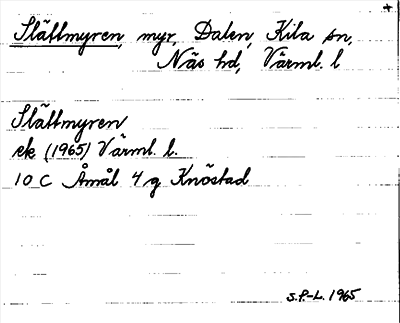 +
Slättmyren, myr, Dalen, Kila sn,
Näs hd, Värml. l
Slättmyren
ek (1965) Värml. l.
10 C Åmål 4 g Knöstad
S.P.-L. 1965